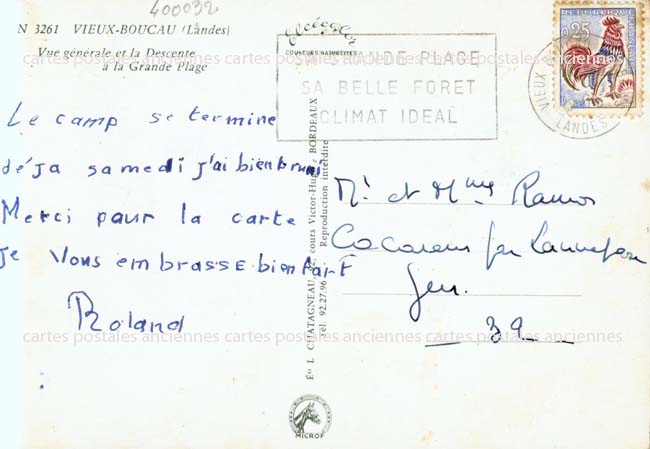 400032
N 3261 VIEUX-BOUCAU (Landes)
Vue générale et la Descente
à la Grande Plage
COULEURS NATURELLES
SA GRANDE PLAGE
SA BELLE FORET
CLIMAT IDEAL
0,25
VIEUX
LANDES
Le camp se termine
déja samedi j'ai bien bruni
Merci pour la carte
je vous embrasse bien fort
Roland
Mr et Mme Ramos
par
Gers.
32
L. CHATAGNEAU, cours Victor-Hugo, BORDEAUX
Tél. 92.27.96 Reproduction interdite
MICRO
cartes postales anciennes cartes postales anciennes
cartes postales anciennes cartes postales anciennes